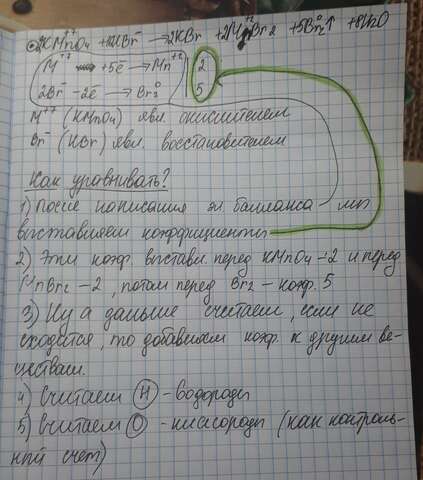 2KMnO4 + 16HBr → 2KBr + 2MnBr2 + 5Br2↑ + 8H2O
+5ē → Mn+2 2
2Br- -2ē → Br2 0 5
M+7 (KMnO4) явл. окислителем
Br- (HBr) явл. восстановителем
Как уравнивать?
1) После написания эл. балланса мы
выставляем коэффициенты
2) Эти коэф. выставл. перед KMnO4 - 2 и перед
MnBr2 - 2, потом перед Br2 - коэф. 5
3) Ну а дальше считаем, если не
сходится, то добавляем коэф. к другим ве-
ществам.
4) Считаем H - водороды
5) Считаем O - кислороды (как контроль-
ный счет)